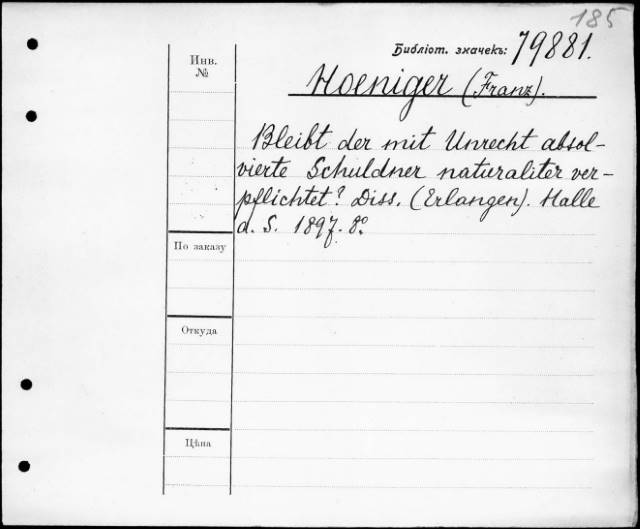 185
Библіот. значекъ: 79881.
Инв.
№
Hoeniger (Franz).
Bleibt der mit Unrecht absol-
vierte Schuldner naturaliter ver-
pflichtet? Diss. (Erlangen). Halle
a. S. 1897. 8°.
По заказу
Откуда
Цѣна